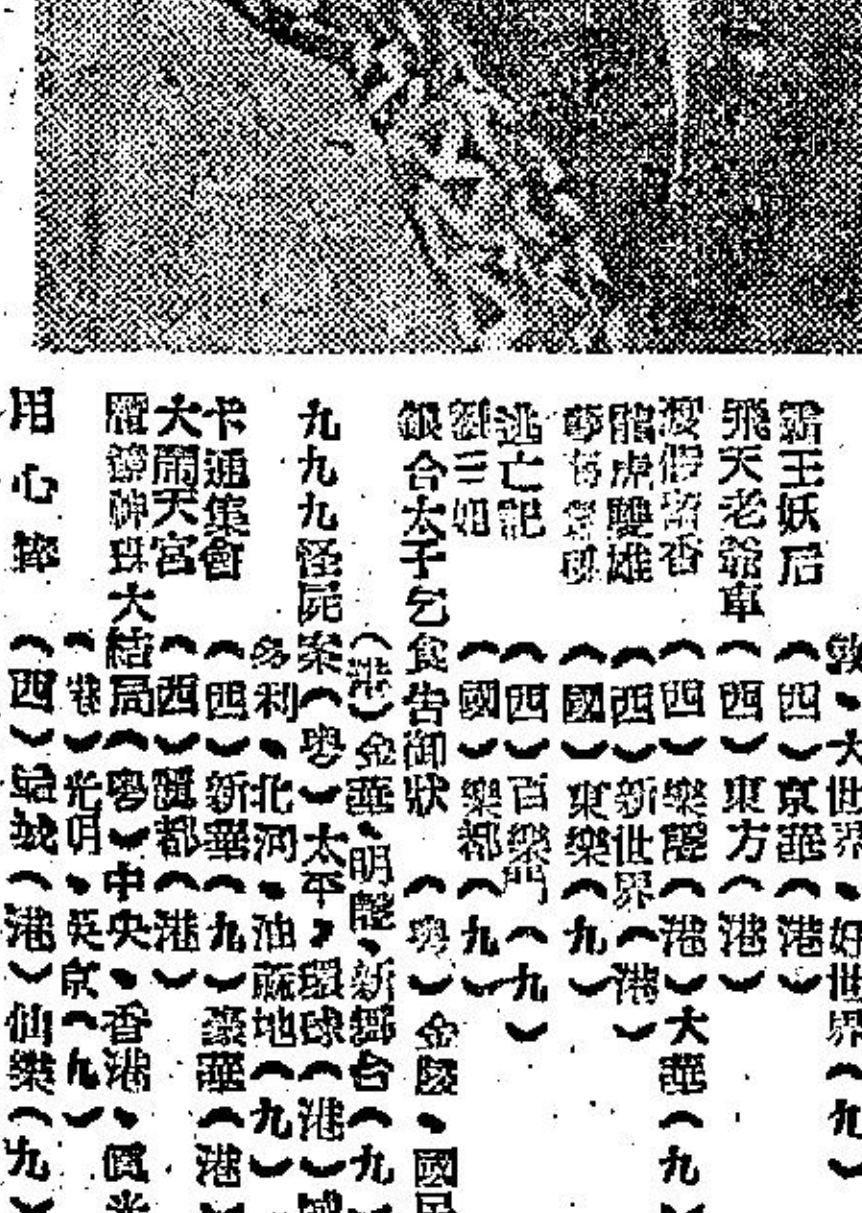 、大世界、好世界（九）
王妖后（西）京華（港）
飛天老爺車（西）東方（港）
香（西）樂聲（港）大華（九）
龍虎雙雄（西）新世界（港）
（國）東樂（九）
逃亡記（西）百樂門（九）
劉三姐（國）樂都（九）
銀合太子乞食告御狀（粵）金陵、國民
（港）金華、明聲、新舞台（九）
九九九怪屍案（粵）太平、環球（港）國
多利、北河、油蔴地（九）
卡通集會（西）新華（九）豪華（港）
大鬧天宮（西）麗都（港）
大結局（粵）中央、香港、國光
（港）光明、英京（九）
用心（西）城（港）仙樂（九）